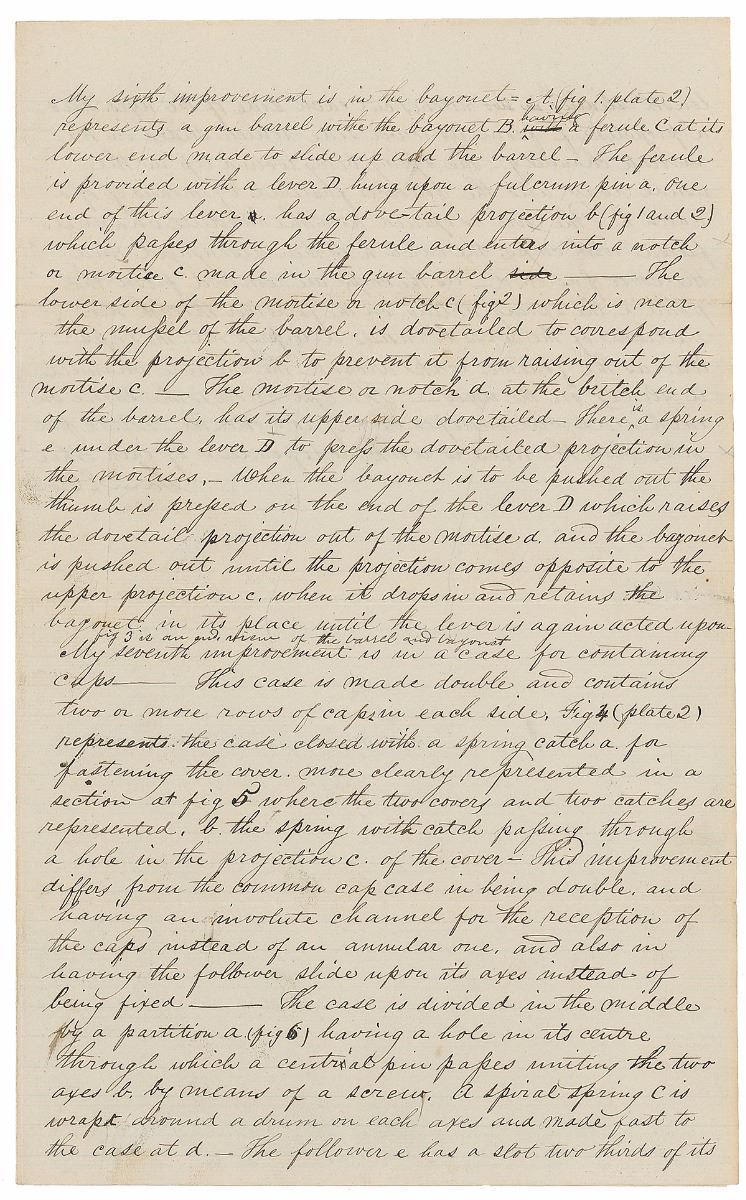 My sixth improvement is in the bayonet = A. (fig 1. plate 2)
represents a gun barrel withe the bayonet B. having a ferule C at its
lower end made to slide up and the barrel – The ferule
is provided with a lever D. hung upon a fulcrum pin a. one
end of this lever has a dove-tail projection b (fig 1 and 2)
which passes through the ferule and enters into a notch
or mortice c. made in the gun barrel side —— The
lower side of the mortise or notch c (fig 2) which is near
the mussel of the barrel, is dovetailed to correspond
with the projection b to prevent it from raising out of the
mortise c. — The mortise or notch d. at the britch end
of the barrel, has its upper side dovetailed – There is a spring
e under the lever D to press the dovetailed projection in
the mortises, – When the bayonet is to be pushed out the
thumb is pressed on the end of the lever D which raises
the dovetail projection out of the mortise d. and the bayonet
is pushed out until the projection comes opposite to the
upper projection c. when it drops in and retains the
bayonet in its place until the lever is again acted upon
fig 3 is an end view of the barrel and bayonet
My seventh improvement is in a case for containing
caps —— This case is made double and contains
two or more rows of caps in each side, Fig 4 (plate 2)
represents the case closed with a spring catch a. for
fastening the cover. more clearly represented in a
section at fig 5 where the two covers and two catches are
represented, b. the spring with catch passing through
a hole in the projection c. of the cover – This improvement
differs from the common cap case in being double, and
having an involute channel for the reception of
the caps instead of an annular one, and also in
having the follower slide upon its axes instead of
being fixed —— The case is divided in the middle
by a partition a (fig 6) having a hole in its centre
through which a central pin passes uniting the two
axes b. by means of a screw. A spiral spring C is
wrapt around a drum on each axes and made fast to
the case at d. – The follower e has a slot two thirds of its